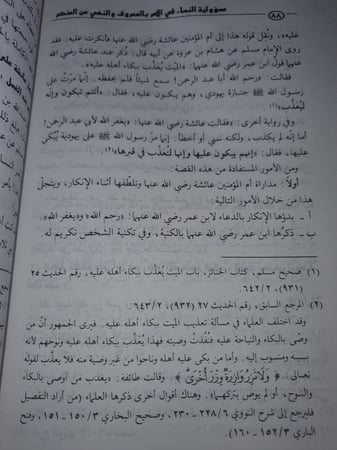 (٨٨) مسؤولية النساء في الأمر بالمعروف والنهي عن المنكر
عليه»، ونُقل قوله هذا إلى أم المؤمنين عائشة رضي الله عنها فأنكرت عليه. فقد
روى الإمام مسلم عن هشام بن عروة عن أبيه قال: ذكر عند عائشة رضي الله
عنها قولُ ابن عمر رضي الله عنهما: «الميت يُعذَّب ببكاء أهله عليه».
فقالت: «رحم الله أبا عبد الرحمن! سمع شيئاً فلم يحفظه. إنما مرَّت على
رسول الله ﷺ جنازة يهودي، وهم يبكون عليه، فقال: «أنتم تبكون وإنه
ليُعذَّب»(١).
وفي رواية أخرى: «فقالت عائشة رضي الله عنها: «يغفر الله لأبي عبد الرحمن!
أما إنّه لم يكذب، ولكنه نسي أو أخطأ. إنما مرّ رسول الله ﷺ على يهودية يُبكى
عليها، فقال: «إنهم يبكون عليها وإنها لتُعذَّب في قبرها»(٢).
ومن الأمور المستفادة من هذه القصة:
أولاً: مداراة أم المؤمنين عائشة رضي الله عنها وتلطّفها أثناء الإنكار، ويتجلّى
هذا من خلال الأمور التالية:
أ - بدؤها الإنكار بالدعاء لابن عمر رضي الله عنهما: «رحم الله» و«يغفر الله».
ب - ذكرُها ابن عمر رضي الله عنهما بالكنية، وفي تكنية الشخص تكريم له.
(١) صحيح مسلم، كتاب الجنائز، باب الميت يُعذَّب ببكاء أهله عليه، رقم الحديث ٢٥
(٩٣١)، ٢/٦٤٢.
(٢) المرجع السابق، رقم الحديث ٢٧ (٩٣٢)، ٢/٦٤٣.
وقد اختلف العلماء في مسألة تعذيب الميت ببكاء أهله عليه. فيرى الجمهور أنّ من
وصّى بالبكاء والنياحة عليه فنُفّذت وصيته فهذا يُعذَّب ببكاء أهله عليه ونوحهم لأنه
بسببه ومنسوب إليه. فأما من بكى عليه أهله وناحوا من غير وصية منه فلا يعذّب لقوله
تعالى: ﴿وَلَا تَزِرُ وَازِرَةٌ وِزْرَ أُخْرَىٰ﴾. وقالت طائفة: «يعذب من أوصى بالبكاء
والنوح، أو لم يوص بتركهما». وهناك أقوال أخرى ذكرها العلماء (من أراد التفصيل
فليرجع إلى شرح النووي ٦/٢٢٨ - ٢٣٠، وصحيح البخاري ٣/١٥٠ - ١٥١، وفتح
الباري ٣/١٥٢ - ١٦٠).